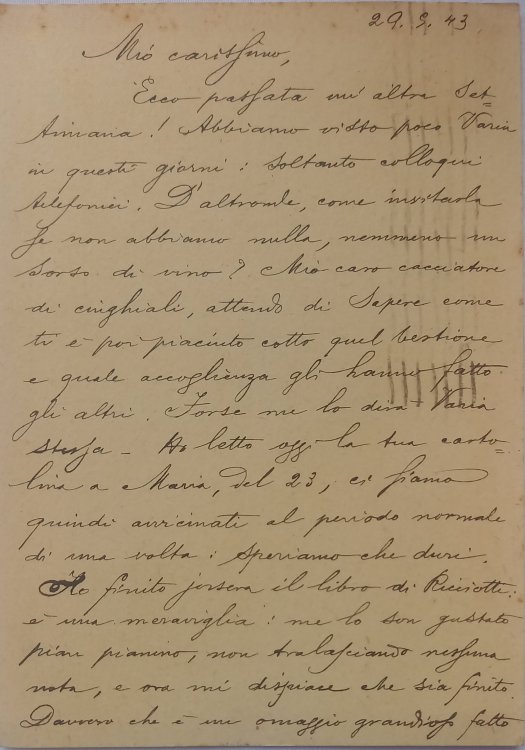 29. 3. 43
Mio carissimo,
Ecco passata un'altra set=
timana! Abbiamo visto poco Varia
in questi giorni: soltanto colloqui
telefonici. D'altronde, come invitarla
se non abbiamo nulla, nemmeno un
sorso di vino? Mio caro cacciatore
di cinghiali, attendo di sapere come
ti è poi piaciuto cotto quel bestione
e quale accoglienza gli hanno fatto
gli altri. Forse me lo dirà Varia
stessa – Ho letto oggi la tua carto=
lina a Maria, del 23, ci siamo
quindi avvicinati al periodo normale
di una volta: speriamo che duri.
Ho finito jersera il libro di Ricciotti:
è una meraviglia: me lo son gustato
pian pianino, non tralasciando nessuna
nota, e ora mi dispiace che sia finito.
Davvero che è un omaggio grandioso fatto